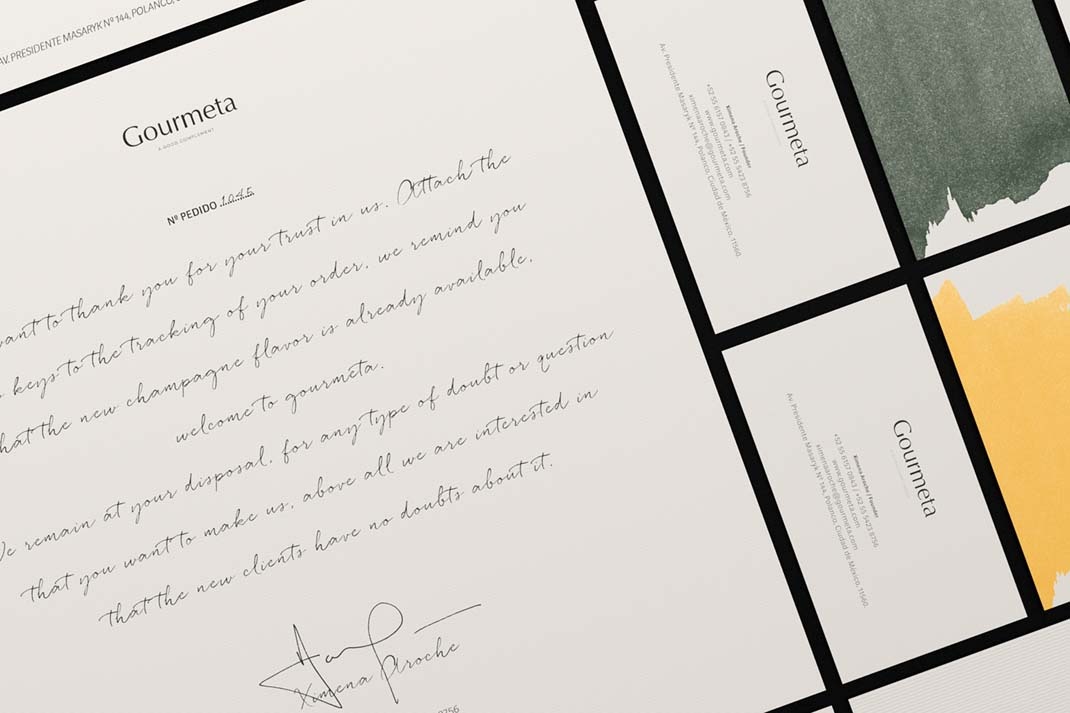 AV. PRESIDENTE MASARYK Nº 144, POLANCO,
Gourmeta
A GOOD COMPLEMENT
Nº PEDIDO 1045
want to thank you for your trust in us. Attach the
keys to the tracking of your order, we remind you
that the new champagne flavor is already available,
welcome to gourmeta.
We remain at your disposal, for any type of doubt or question
that you want to make us, above all we are interested in
that the new clients have no doubts about it.
Ximena Aroche
8756
Gourmeta
Ximena Aroche / Founder
+52 55 6157 0943 / +52 55 5423 8756
www.gourmeta.com
ximenaaroche@gourmeta.com
Av. Presidente Masaryk Nº 144, Polanco, Ciudad de México, 11560.
Gourmeta
Ximena Aroche / Founder
+52 55 6157 0943 / +52 55 5423 8756
www.gourmeta.com
ximenaaroche@gourmeta.com
Av. Presidente Masaryk Nº 144, Polanco, Ciudad de México, 11560.